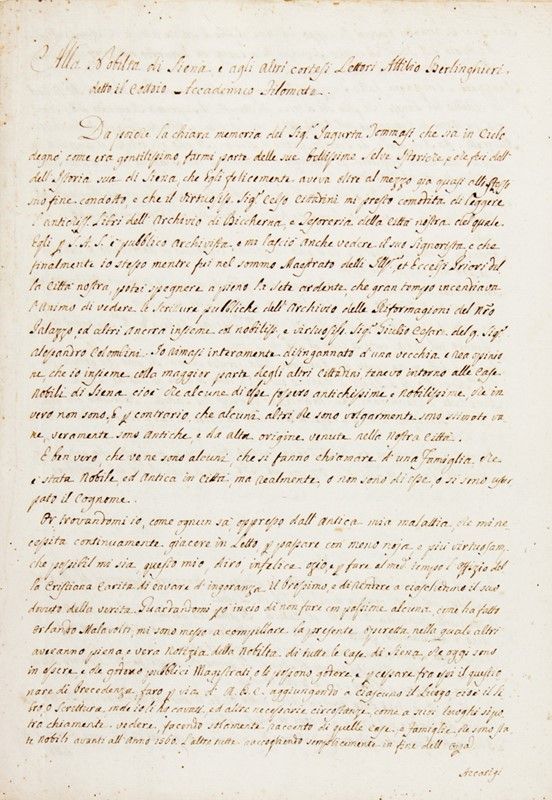 Alla Nobiltà di Siena, e agli altri cortesi Lettori Attilio Berlinghieri
detto il Accademico Filomato.
Da poiche la chiara memoria del Sig.r Iugurta Tommasi, che sia in Cielo
degnò come era gentilissimo, farmi parte delle sue bellissime Istorie,
dell'Istoria sua di Siena, che Egli felicemente aveva oltre al mezzo già quasi allo
suo fine condotto, e che il virtuosiss. Sig.r Celso Cittadini mi prestò comodità di leggere
l'antichiss. libri dell'Archivio di Biccherna, e Tesoreria della Città nostra del quale
Egli p S. A. S. è pubblico Archivista, e mi lasciò anche vedere il suo Signorista, e che
finalmente io stesso mentre fui nel sommo Maestrato delli Ill.mi et Eccelsi Priori del
la Città nostra, potei spegnere a pieno la sete ardente, che gran tempo incendiava
l'animo di vedere le Scritture pubbliche dell'Archivio delle Riformagioni del nro
Palazzo ed altri ancora insieme col nobiliss. e virtuosiss. Sig.r Giulio Cesare del q. Sig.r
Alessandro Colombini. Io rimasi interamente disingannato d'una vecchia e rea opinio
ne, che io insieme colla maggior parte degli altri Cittadini tenevo intorno alle Case
nobili di Siena cioè che alcune di esse fossero antichissime e nobilissime, che in
vero non sono, e p contrario, che alcuni altri che sono volgarmente stimate va
ne, veramente sono antiche, e da alta origine venute nella Nostra Città.
E ben vero che ve ne sono alcuni, che si fanno chiamare d'una Famiglia, che
è stata Nobile, ed Antica in Città, ma realmente o non sono di esse, o si sono usur
pato il Cognome.
Or trovandomi io, come ognun sà oppresso dall'Antica mia malattia, che mi ne
cessita continuamente giacere in Letto p passare con meno noja, e più virtuosam.
che possibil mi sia questo mio infelice ozio, e p fare al med.o tempo l'offizio del
la Cristiana Carità di cavare d'ingoranza il Prossimo, e di rendere a ciascheduno il suo
dovuto della verità. Guardandomi po inciò di non fare passione alcuna come ha fatto
Orlando Malavolti, mi sono messo a compillare la presente operetta, nella quale altri
averanno piena e vera notizia della Nobiltà di tutte le Case di Siena, che oggi sono
in essere, e che godono pubblici Magistrati, o li possono godere, e p cessare fra essi il questio
nare di precedenza, farò p via d'A. B. C. aggiungendo a ciascuno il luogo cioè il Li
bro o Scrittura, onde io li ho cavati, ed altre necessarie circostanze, come a suoi luoghi si po
trà chiamente vedere, facendo solamente racconto di quelle Case, e famiglie che sono sta
te nobili avanti all'Anno 1560. l'altre tutte raccogliendo semplicemente in fine dell'opa.
Accarigi